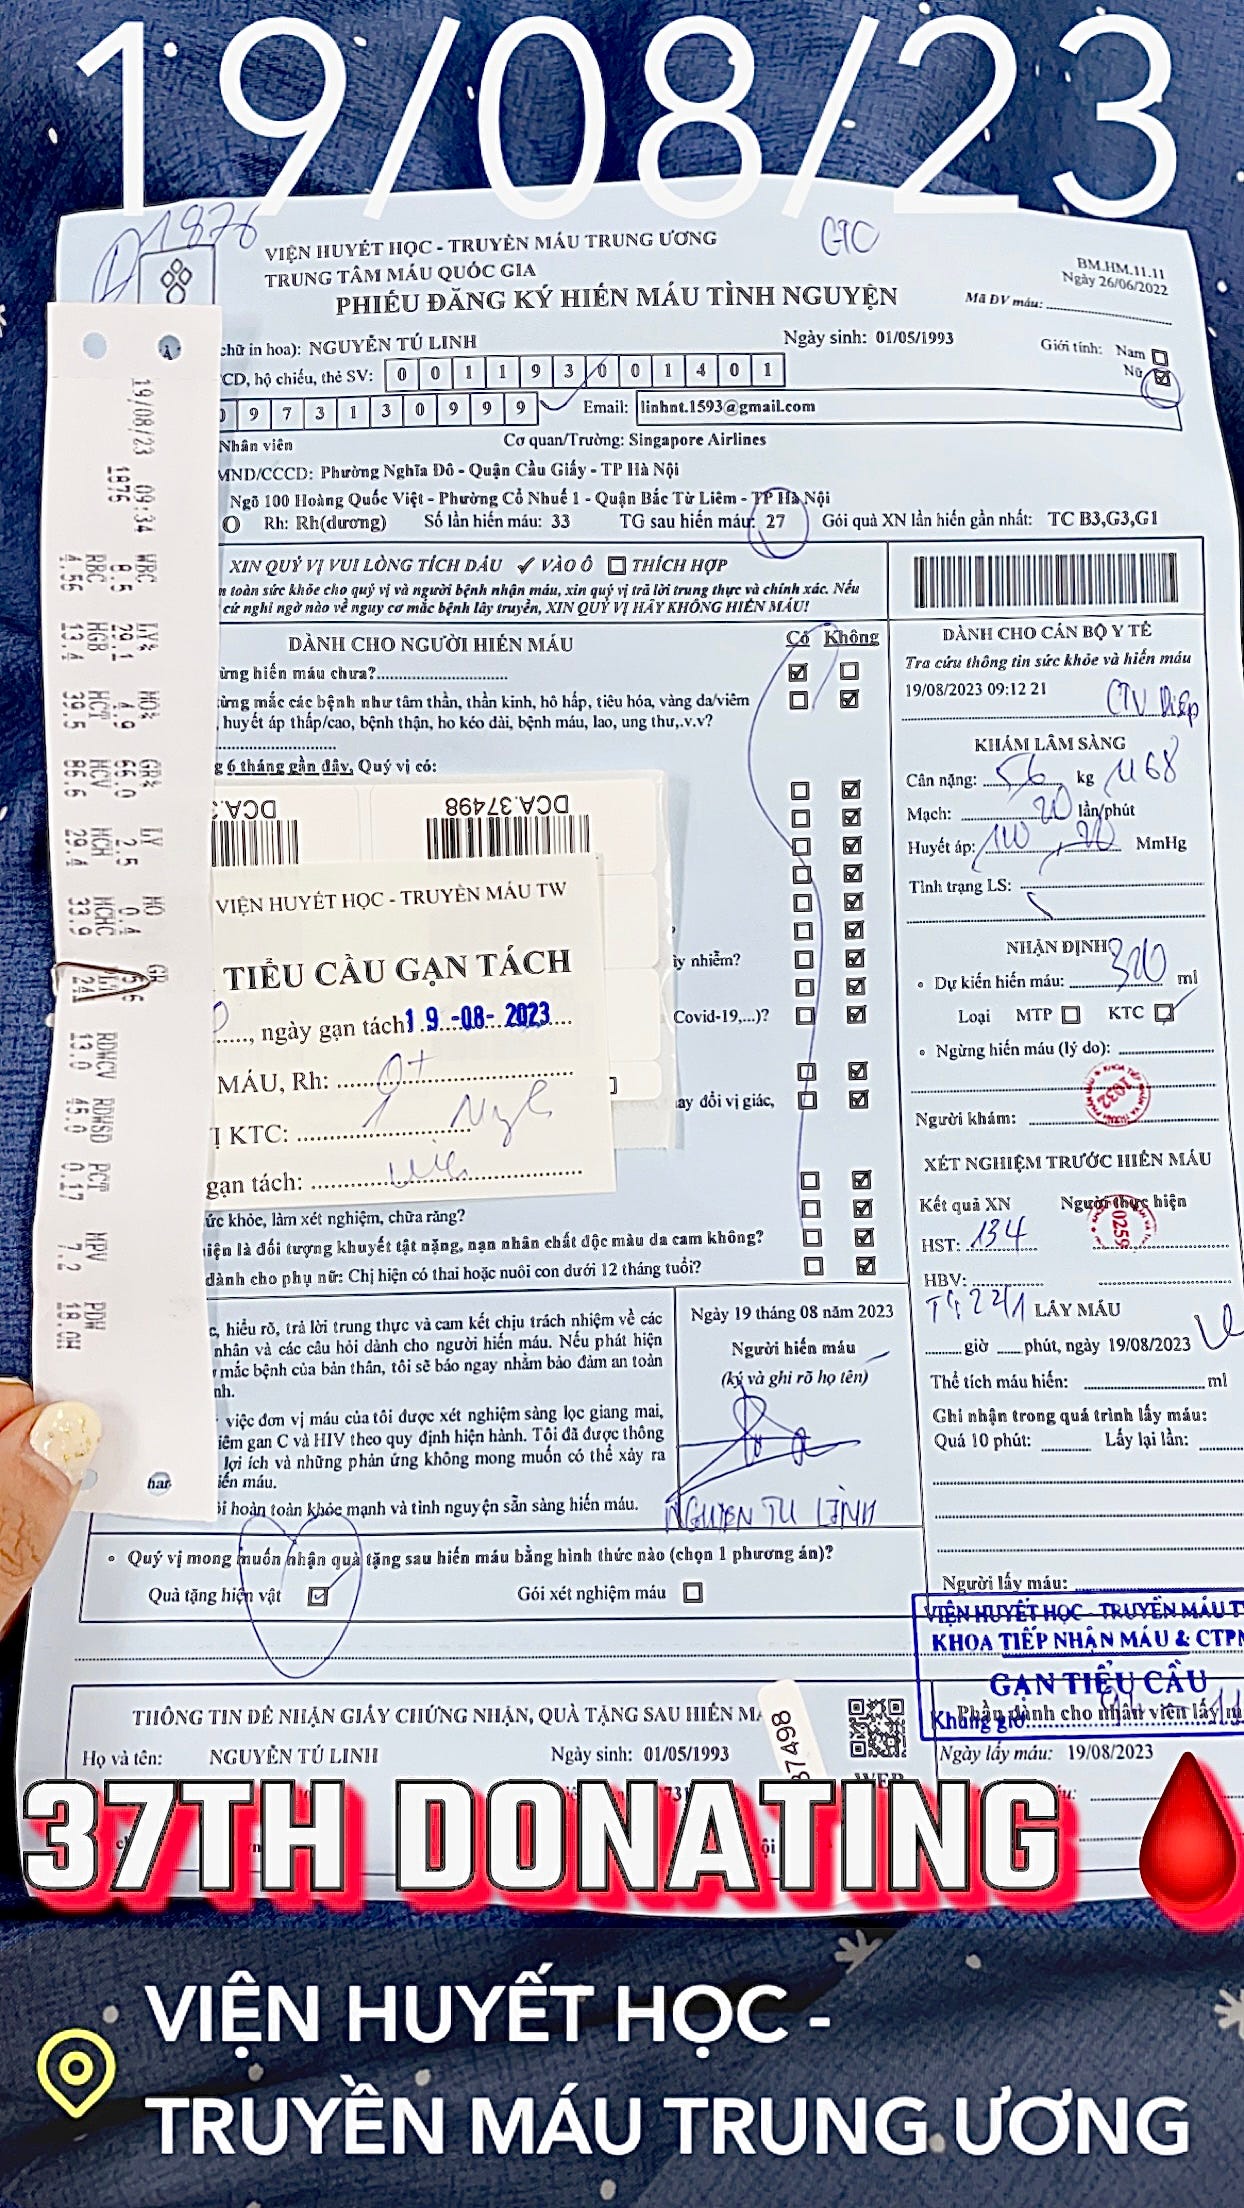 19/08/23
1976
GTC
VIỆN HUYẾT HỌC - TRUYỀN MÁU TRUNG ƯƠNG
TRUNG TÂM MÁU QUỐC GIA
PHIẾU ĐĂNG KÝ HIẾN MÁU TÌNH NGUYỆN
BM.HM.11.11
Ngày 26/06/2022
Mã ĐV máu:
chữ in hoa): NGUYỄN TÚ LINH
Ngày sinh: 01/05/1993
Giới tính: Nam
Nữ
CD, hộ chiếu, thẻ SV: 0 0 1 1 9 3 0 0 1 4 0 1
9 7 3 1 3 0 9 9 9
Email: linhnt.1593@gmail.com
Nhân viên
Cơ quan/Trường: Singapore Airlines
MND/CCCD: Phường Nghĩa Đô - Quận Cầu Giấy - TP Hà Nội
Ngõ 100 Hoàng Quốc Việt - Phường Cổ Nhuế 1 - Quận Bắc Từ Liêm - TP Hà Nội
O Rh: Rh(dương) Số lần hiến máu: 33 TG sau hiến máu: 27 Gói quà XN lần hiến gần nhất: TC B3,G3,G1
XIN QUÝ VỊ VUI LÒNG TÍCH DẤU ✓ VÀO Ô THÍCH HỢP
n toàn sức khỏe cho quý vị và người bệnh nhận máu, xin quý vị trả lời trung thực và chính xác. Nếu
cứ nghi ngờ nào về nguy cơ mắc bệnh lây truyền, XIN QUÝ VỊ HÃY KHÔNG HIẾN MÁU!
DÀNH CHO NGƯỜI HIẾN MÁU
Có Không
ừng hiến máu chưa?
ừng mắc các bệnh như tâm thần, thần kinh, hô hấp, tiêu hóa, vàng da/viêm
, huyết áp thấp/cao, bệnh thận, ho kéo dài, bệnh máu, lao, ung thư,.v.v?
g 6 tháng gần đây, Quý vị có:
ây nhiễm?
Covid-19,...)?
ay đổi vị giác,
ức khỏe, làm xét nghiệm, chữa răng?
iện là đối tượng khuyết tật nặng, nạn nhân chất độc màu da cam không?
dành cho phụ nữ: Chị hiện có thai hoặc nuôi con dưới 12 tháng tuổi?
DCA.3
DCA.37498
VIỆN HUYẾT HỌC - TRUYỀN MÁU TW
TIỂU CẦU GẠN TÁCH
, ngày gạn tách 19 -08- 2023
MÁU, Rh: O+
KTC:
gạn tách:
19/08/23 09:34
1976
WBC 8.5
LY% 29.1
MO% 4.9
GR% 66.0
LY 2.5
MO 0.4
GR 5.6
RBC 4.56
HGB 13.4
HCT 39.5
MCV 86.6
MCH 29.4
MCHC 33.9
241
RDWCV 13.0
RDWSD 45.0
PCT 0.17
MPV 7.2
PDW
har
DÀNH CHO CÁN BỘ Y TẾ
Tra cứu thông tin sức khỏe và hiến máu
19/08/2023 09:12 21
CTV Diệp
KHÁM LÂM SÀNG
Cân nặng: 56 kg 1168
Mạch: lần/phút
Huyết áp: MmHg
Tình trạng LS:
NHẬN ĐỊNH
Dự kiến hiến máu: 320 ml
Loại MTP KTC
Ngừng hiến máu (lý do):
Người khám:
1032
XÉT NGHIỆM TRƯỚC HIẾN MÁU
Kết quả XN Người thực hiện
0259
HST: 134
HBV:
241
LẤY MÁU
giờ phút, ngày 19/08/2023
Thể tích máu hiến: ml
Ghi nhận trong quá trình lấy máu:
Quá 10 phút: Lấy lại lần:
Người lấy máu:
c, hiểu rõ, trả lời trung thực và cam kết chịu trách nhiệm về các
nhân và các câu hỏi dành cho người hiến máu. Nếu phát hiện
mắc bệnh của bản thân, tôi sẽ báo ngay nhằm bảo đảm an toàn
nh.
việc đơn vị máu của tôi được xét nghiệm sàng lọc giang mai,
iêm gan C và HIV theo quy định hiện hành. Tôi đã được thông
lợi ích và những phản ứng không mong muốn có thể xảy ra
iến máu.
i hoàn toàn khỏe mạnh và tình nguyện sẵn sàng hiến máu.
Ngày 19 tháng 08 năm 2023
Người hiến máu
(ký và ghi rõ họ tên)
NGUYEN TU LINH
Quý vị mong muốn nhận quà tặng sau hiến máu bằng hình thức nào (chọn 1 phương án)?
Quà tặng hiện vật Gói xét nghiệm máu
VIỆN HUYẾT HỌC - TRUYỀN MÁU T
KHOA TIẾP NHẬN MÁU & CTP
GẠN TIỂU CẦU
Khung giờ
Phần dành cho nhân viên lấy m
THÔNG TIN ĐỂ NHẬN GIẤY CHỨNG NHẬN, QUÀ TẶNG SAU HIẾN MÁ
37498
Họ và tên: NGUYỄN TÚ LINH Ngày sinh: 01/05/1993
Ngày lấy máu: 19/08/2023
37TH DONATING
VIỆN HUYẾT HỌC -
TRUYỀN MÁU TRUNG ƯƠNG